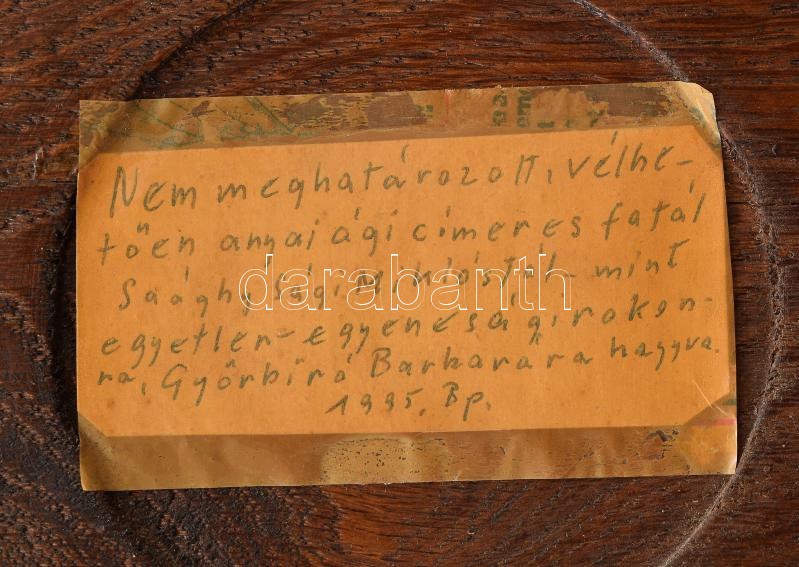 Nem meghatározott, vélhe-
tően anyai ági címeres fatál
Saághy Sági Miklóstól - mint
egyetlen - egyenesági rokon-
ra, Győrbíró Barbarára hagyva.
1995. Bp.
darabanth